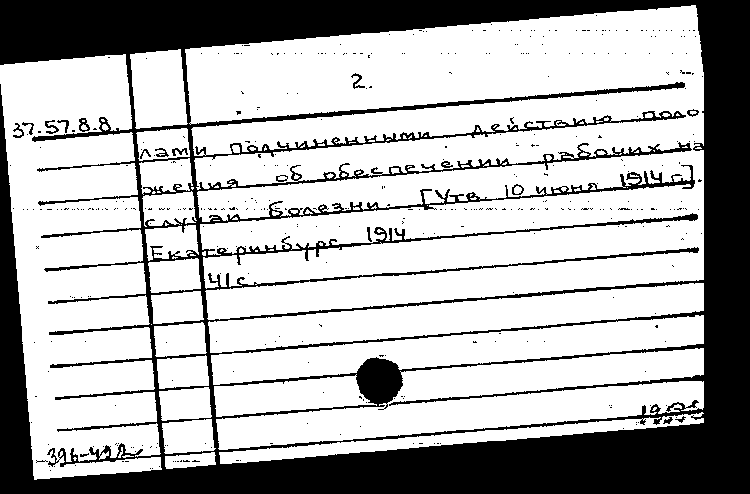 2.
37.57.8.8.
лами, подчиненными действию поло-
жения об обеспечении рабочих на
случай болезни. [Утв. 10 июня 1914 г.].
Екатеринбург, 1914
41 с.